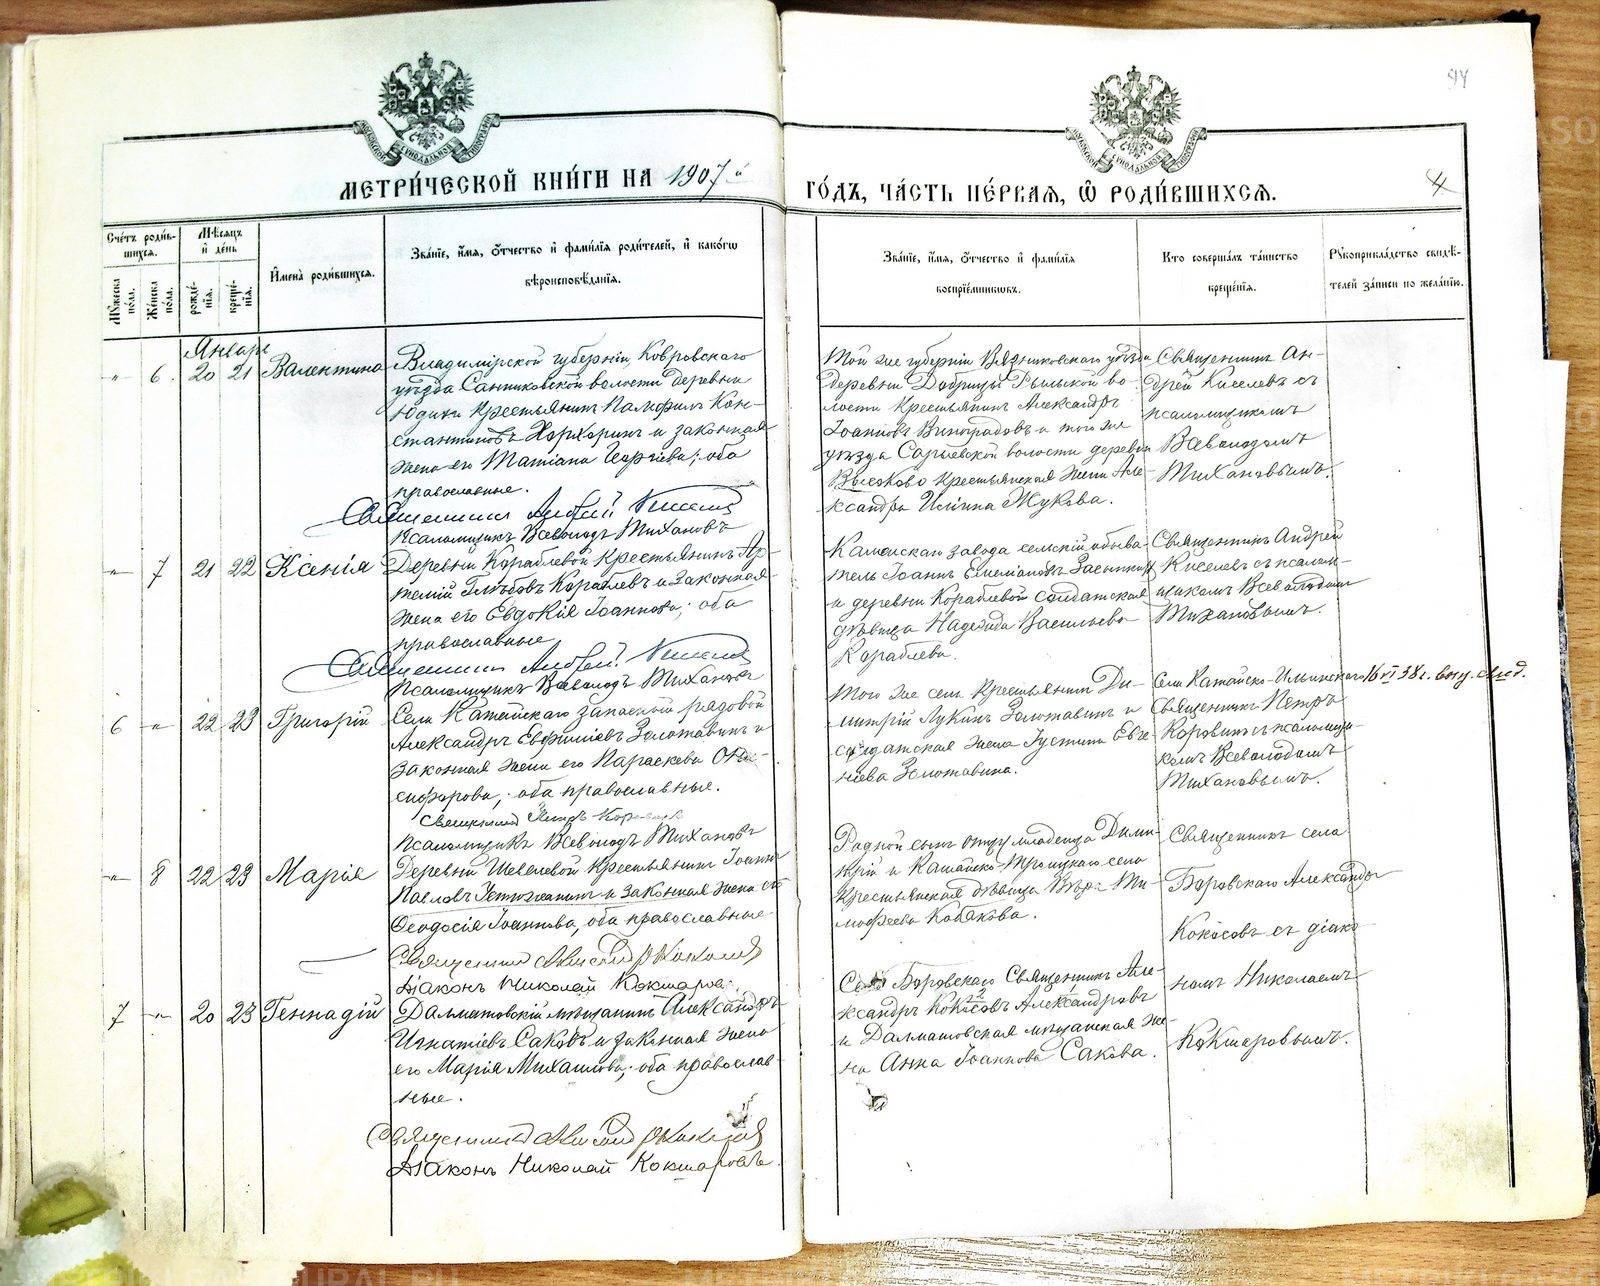 94
МЕТРИ́ЧЕСКОЙ КНИ́ГИ НА 1907 й
ГО́ДЪ, ЧА́СТЬ ПЕ́РВАЯ, Ѿ РОДИ́ВШИХСЯ.
4
Сче́тъ роди́в-
шихся.
Мѣ́сяцъ
и де́нь
Му́жеска по́ла.
Же́нска по́ла.
рожде́-
нія.
креще́-
нія.
Имена̀ роди́вшихся.
Зва́ніе, и́мя, о́тчество и фами́лія роди́телей, и како́гѡ
вѣроисповѣ́данія.
Зва́ніе, и́мя, о́тчество и фами́лія
воспріе́мниковъ.
Кто̀ соверша́лъ та́инство
креще́нія.
Рукоприкла́дство свидѣ́-
телей за́писи по жела́нію.
Январь
6. 20 21 Валентина
Владимірской губерніи Ковровскаго
уѣзда Санниковской волости деревни
Юдихи крестьянинъ Памфилъ Кон-
стантиновъ Хорхоринъ и законная
жена его Татіана Георгіева; оба
православные.
Священникъ Андрей Киселевъ
Псаломщикъ Всеволодъ Тихановъ
Той же губерніи Вязниковскаго уѣзда
деревни во-
лости крестьянинъ Александръ
Іоанновъ Виноградовъ и той же
уѣзда Сарыевской волости деревни
Высоково крестьянская жена Але-
ксандра Ильина Жукова.
Священникъ Ан-
дрей Киселевъ съ
псаломщикомъ
Всеволодомъ
Тихановымъ.
7 21 22 Ксенія
Деревни Кораблевой крестьянинъ Ар-
темій Глѣбовъ Кораблевъ и законная
жена его Евдокія Іоаннова; оба
православные
Священникъ Андрей Киселевъ
Псаломщикъ Всеволодъ Тихановъ
Каменскаго завода сельскій обыва-
тель Іоаннъ Емеліановъ Засыпкинъ
и деревни Кораблевой солдатская
дѣвица Надежда Васильева
Кораблева.
Священникъ Андрей
Киселевъ съ псалом-
щикомъ Всеволодомъ
Тихановымъ.
6 22 23 Григорій
Села Катайскаго запасный рядовой
Александръ Евфиміевъ Золотавинъ и
законная жена его Параскева Они-
сифорова; оба православные.
Священникъ Петръ Коровинъ
Псаломщикъ Всеволодъ Тихановъ
Того же села крестьянинъ Ди-
митрій Лукинъ Золотавинъ и
солдатская жена Іустина Евге-
ніева Золотавина.
Села Катайско-Ильинскаго
Священникъ Петръ
Коровинъ съ псаломщи-
комъ Всеволодомъ
Тихановымъ.
16 VI 38 г. выд. свид.
8 22 23 Марія
Деревни Шевелевой крестьянинъ Іоаннъ
Павловъ и законная жена его
Ѳеодосія Іоаннова, оба православные
Священникъ Александръ Кокосовъ
Діаконъ Николай Кокшаровъ.
Родной сынъ отцу младенца Дими-
трій и Катайско-Троицкаго села
крестьянская дѣвица Вѣра Ти-
мофеева Кобякова.
Священникъ села
Боровскаго Александръ
Кокосовъ съ діако-
номъ Николаемъ
Кокшаровымъ.
7 20 23 Геннадій
Далматовскій мѣщанинъ Александръ
Игнатіевъ Саковъ и законная жена
его Марія Михаилова; оба православ-
ные.
Священникъ Александръ Кокосовъ
Діаконъ Николай Кокшаровъ.
Села Боровскаго Священникъ Але-
ксандръ Кокосовъ Александровъ
и Далматовская мѣщанская же-
на Анна Іоаннова Сакова.